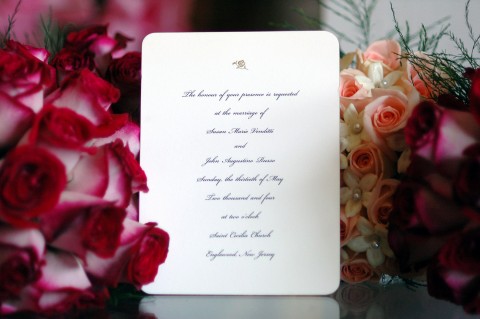 The honour of your presence is requested
at the marriage of
Susan Marie Venditti
and
John Augustine Russo
Sunday, the thirtieth of May
Two thousand and four
at two o'clock
Saint Cecilia Church
Englewood, New Jersey